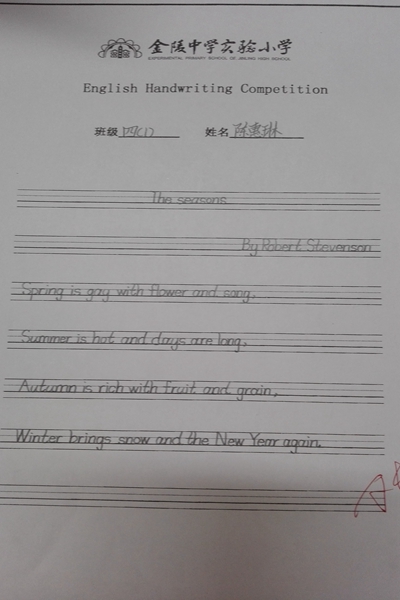 金陵中学实验小学
EXPERIMENTAL PRIMARY SCHOOL OF JINLING HIGH SCHOOL
English Handwriting Competition
班级 四(1) 姓名 陈惠琳
The seasons
By Robert Stevenson
Spring is gay with flower and song,
Summer is hot and days are long,
Autumn is rich with fruit and grain,
Winter brings snow and the New Year again.